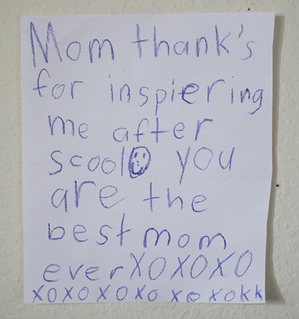 Mom thank's
for inspiering
me after
scool☺ you
are the
best mom
ever XOXOXO
XOXO XOXO XO XOKK